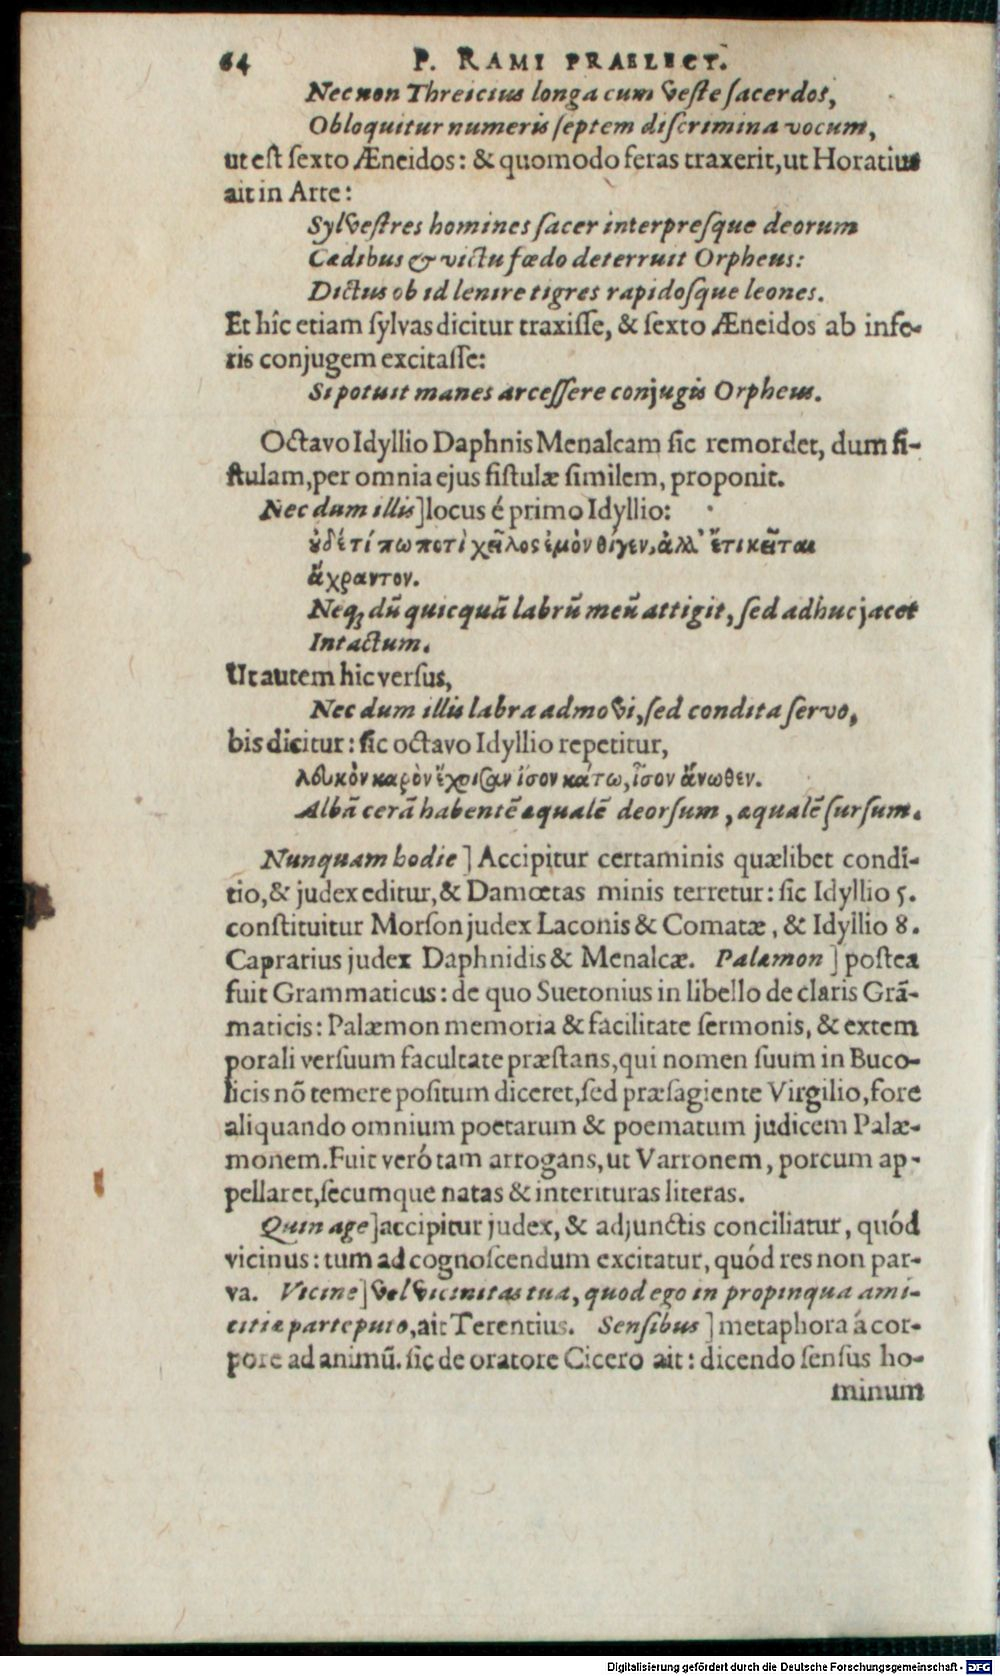 64 P. RAMI PRAELECT.
Nec non Threicius longa cum veste ſacerdos,
Obloquitur numeris ſeptem diſcrimina vocum,
ut eſt ſexto Æneidos: & quomodo feras traxerit, ut Horatius
ait in Arte:
Sylveſtres homines ſacer interpreſque deorum
Cædibus & victu fœdo deterruit Orpheus:
Dictus ob id lenire tigres rapidoſque leones.
Et hîc etiam ſylvas dicitur traxiſſe, & ſexto Æneidos ab infe-
ris conjugem excitaſſe:
Si potuit manes arceſſere conjugis Orpheus.
Octavo Idyllio Daphnis Menalcam ſic remordet, dum fi-
ſtulam, per omnia ejus fiſtulæ ſimilem, proponit.
Nec dum illis] locus é primo Idyllio:
ȣδέ τί πω ποτὶ χεῖλος ἐμὸν θίγεν, ἀλλ' ἔτι κεῖται
ἄχραντον.
Neq; dū quicquã labrū meū attigit, ſed adhuc jacet
Intactum.
Ut autem hic verſus,
Nec dum illis labra admovi, ſed condita ſervo,
bis dicitur: ſic octavo Idyllio repetitur,
λευκὸν καρὸν ἔχοισαν ἴσον κάτω, ἶσον ἄνωθεν.
Albã cerã habentẽ æqualẽ deorſum, æqualẽ ſurſum.
Nunquam hodie] Accipitur certaminis quælibet condi-
tio, & judex editur, & Damœtas minis terretur: ſic Idyllio 5.
conſtituitur Morſon judex Laconis & Comatæ, & Idyllio 8.
Caprarius judex Daphnidis & Menalcæ. Palæmon] poſtea
fuit Grammaticus: de quo Suetonius in libello de claris Grã-
maticis: Palæmon memoria & facilitate ſermonis, & extem
porali verſuum facultate præſtans, qui nomen ſuum in Buco-
licis nõ temere poſitum diceret, ſed præſagiente Virgilio, fore
aliquando omnium poetarum & poematum judicem Palæ-
monem. Fuit veró tam arrogans, ut Varronem, porcum ap-
pellaret, ſecumque natas & interituras literas.
Quin age] accipitur judex, & adjunctis conciliatur, quód
vicinus: tum ad cognoſcendum excitatur, quód res non par-
va. Vicine] vel vicinitas tua, quod ego in propinqua ami-
citiæ parte puto, ait Terentius. Senſibus] metaphora á cor-
pore ad animū. ſic de oratore Cicero ait: dicendo ſenſus ho-
minum
Digitalisierung gefördert durch die Deutsche Forschungsgemeinschaft - DFG